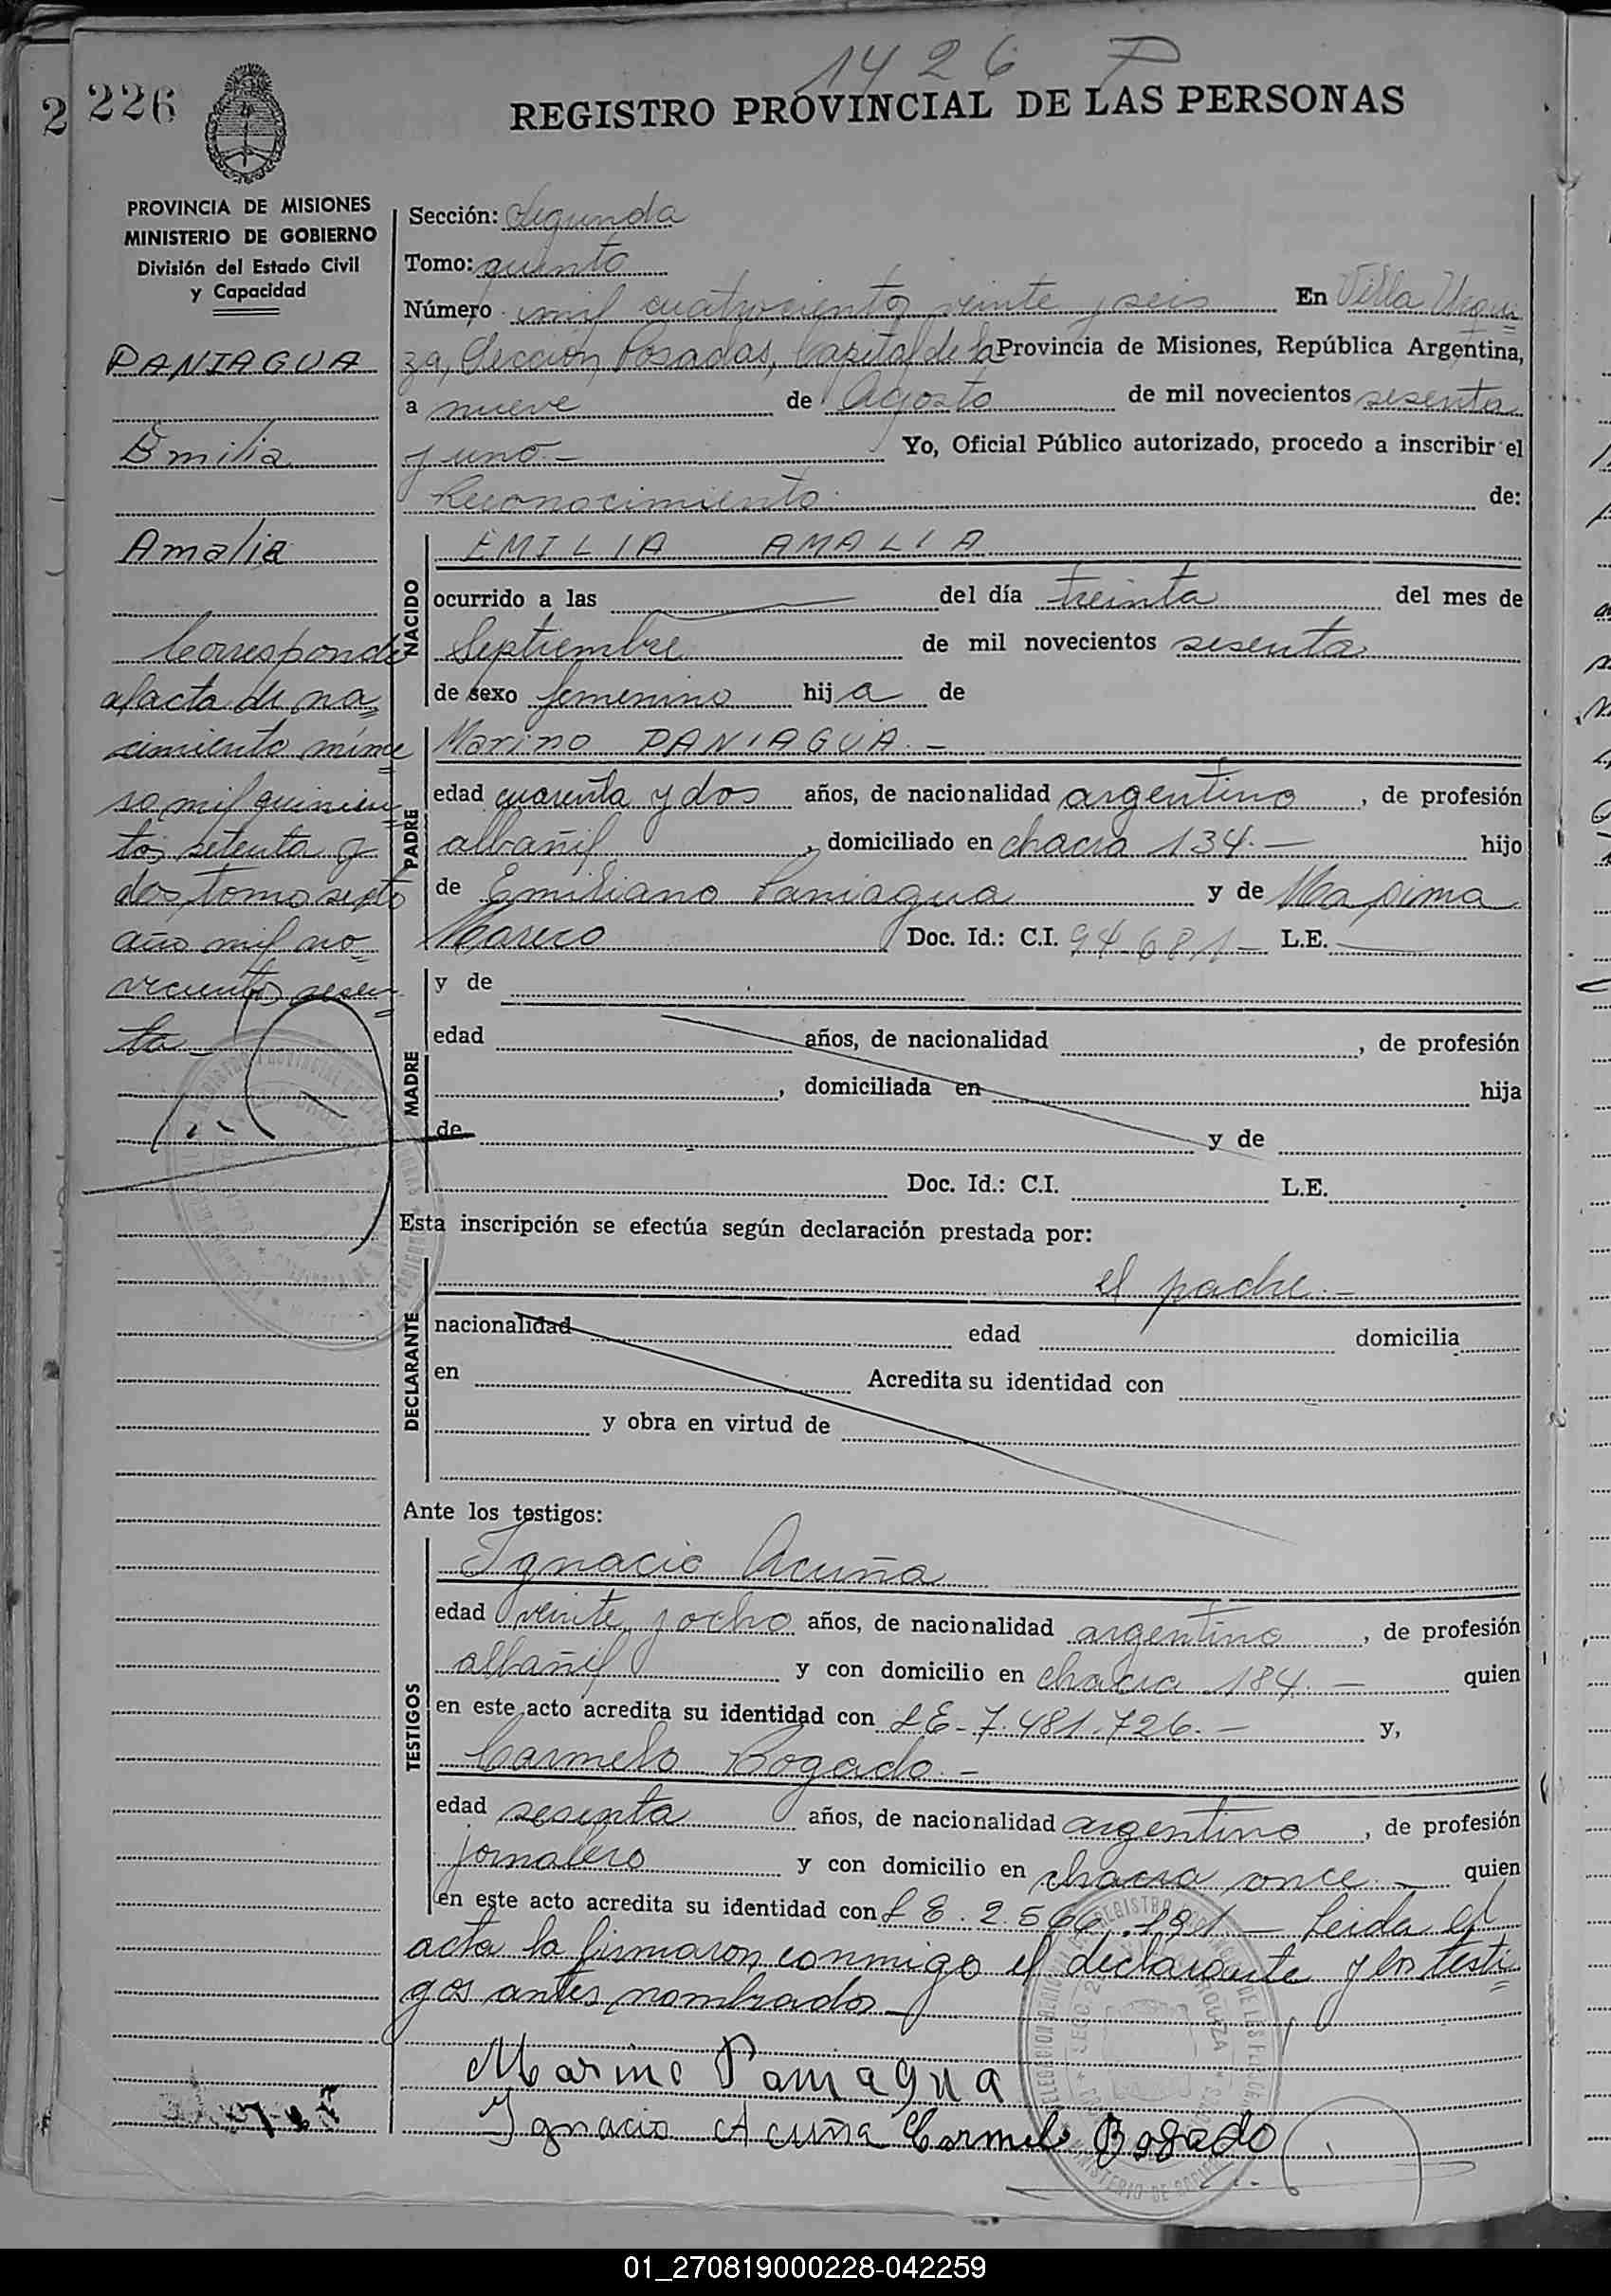 1426 P
2 226
REGISTRO PROVINCIAL DE LAS PERSONAS
PROVINCIA DE MISIONES
MINISTERIO DE GOBIERNO
División del Estado Civil
y Capacidad
PANIAGUA
Emilia
Amalia
Corresponde
al acta de na=
cimiento núme=
ro mil quinien=
tos setenta y
dos, tomo sexto
año mil no=
vecientos sesen=
ta –
Sección: Segunda
Tomo: quinto
Número mil cuatrocientos veinte y seis En Villa Urqui=
za, Sección Posadas, Capital de la Provincia de Misiones, República Argentina,
a nueve de Agosto de mil novecientos sesenta
y uno.– Yo, Oficial Público autorizado, procedo a inscribir el
Reconocimiento de:
NACIDO
EMILIA AMALIA
ocurrido a las del día treinta del mes de
Septiembre de mil novecientos sesenta
de sexo femenino hija de
PADRE
Marino PANIAGUA.–
edad cuarenta y dos años, de nacionalidad argentino, de profesión
albañil, domiciliado en chacra 134.– hijo
de Emiliano Paniagua y de Maxima
Mareco Doc. Id.: C.I. 94.681– L.E.
MADRE
y de
edad años, de nacionalidad , de profesión
, domiciliada en hija
de y de
Doc. Id.: C.I. L.E.
Esta inscripción se efectúa según declaración prestada por:
DECLARANTE
el padre.–
nacionalidad edad domicilia
en Acredita su identidad con
y obra en virtud de
Ante los testigos:
TESTIGOS
Ignacio Acuña
edad veinte y ocho años, de nacionalidad argentino, de profesión
albañil y con domicilio en chacra 184.– quien
en este acto acredita su identidad con LE– 7.481.726.– y,
Carmelo Bogado.–
edad sesenta años, de nacionalidad argentino, de profesión
jornalero y con domicilio en chacra once.– quien
en este acto acredita su identidad con L E. – Leida el
acta la firmaron conmigo el declarante y los testi=
gos antes nombrados–
Marino Paniagua
Ignacio Acuña Carmelo Bogado
01_270819000228-042259